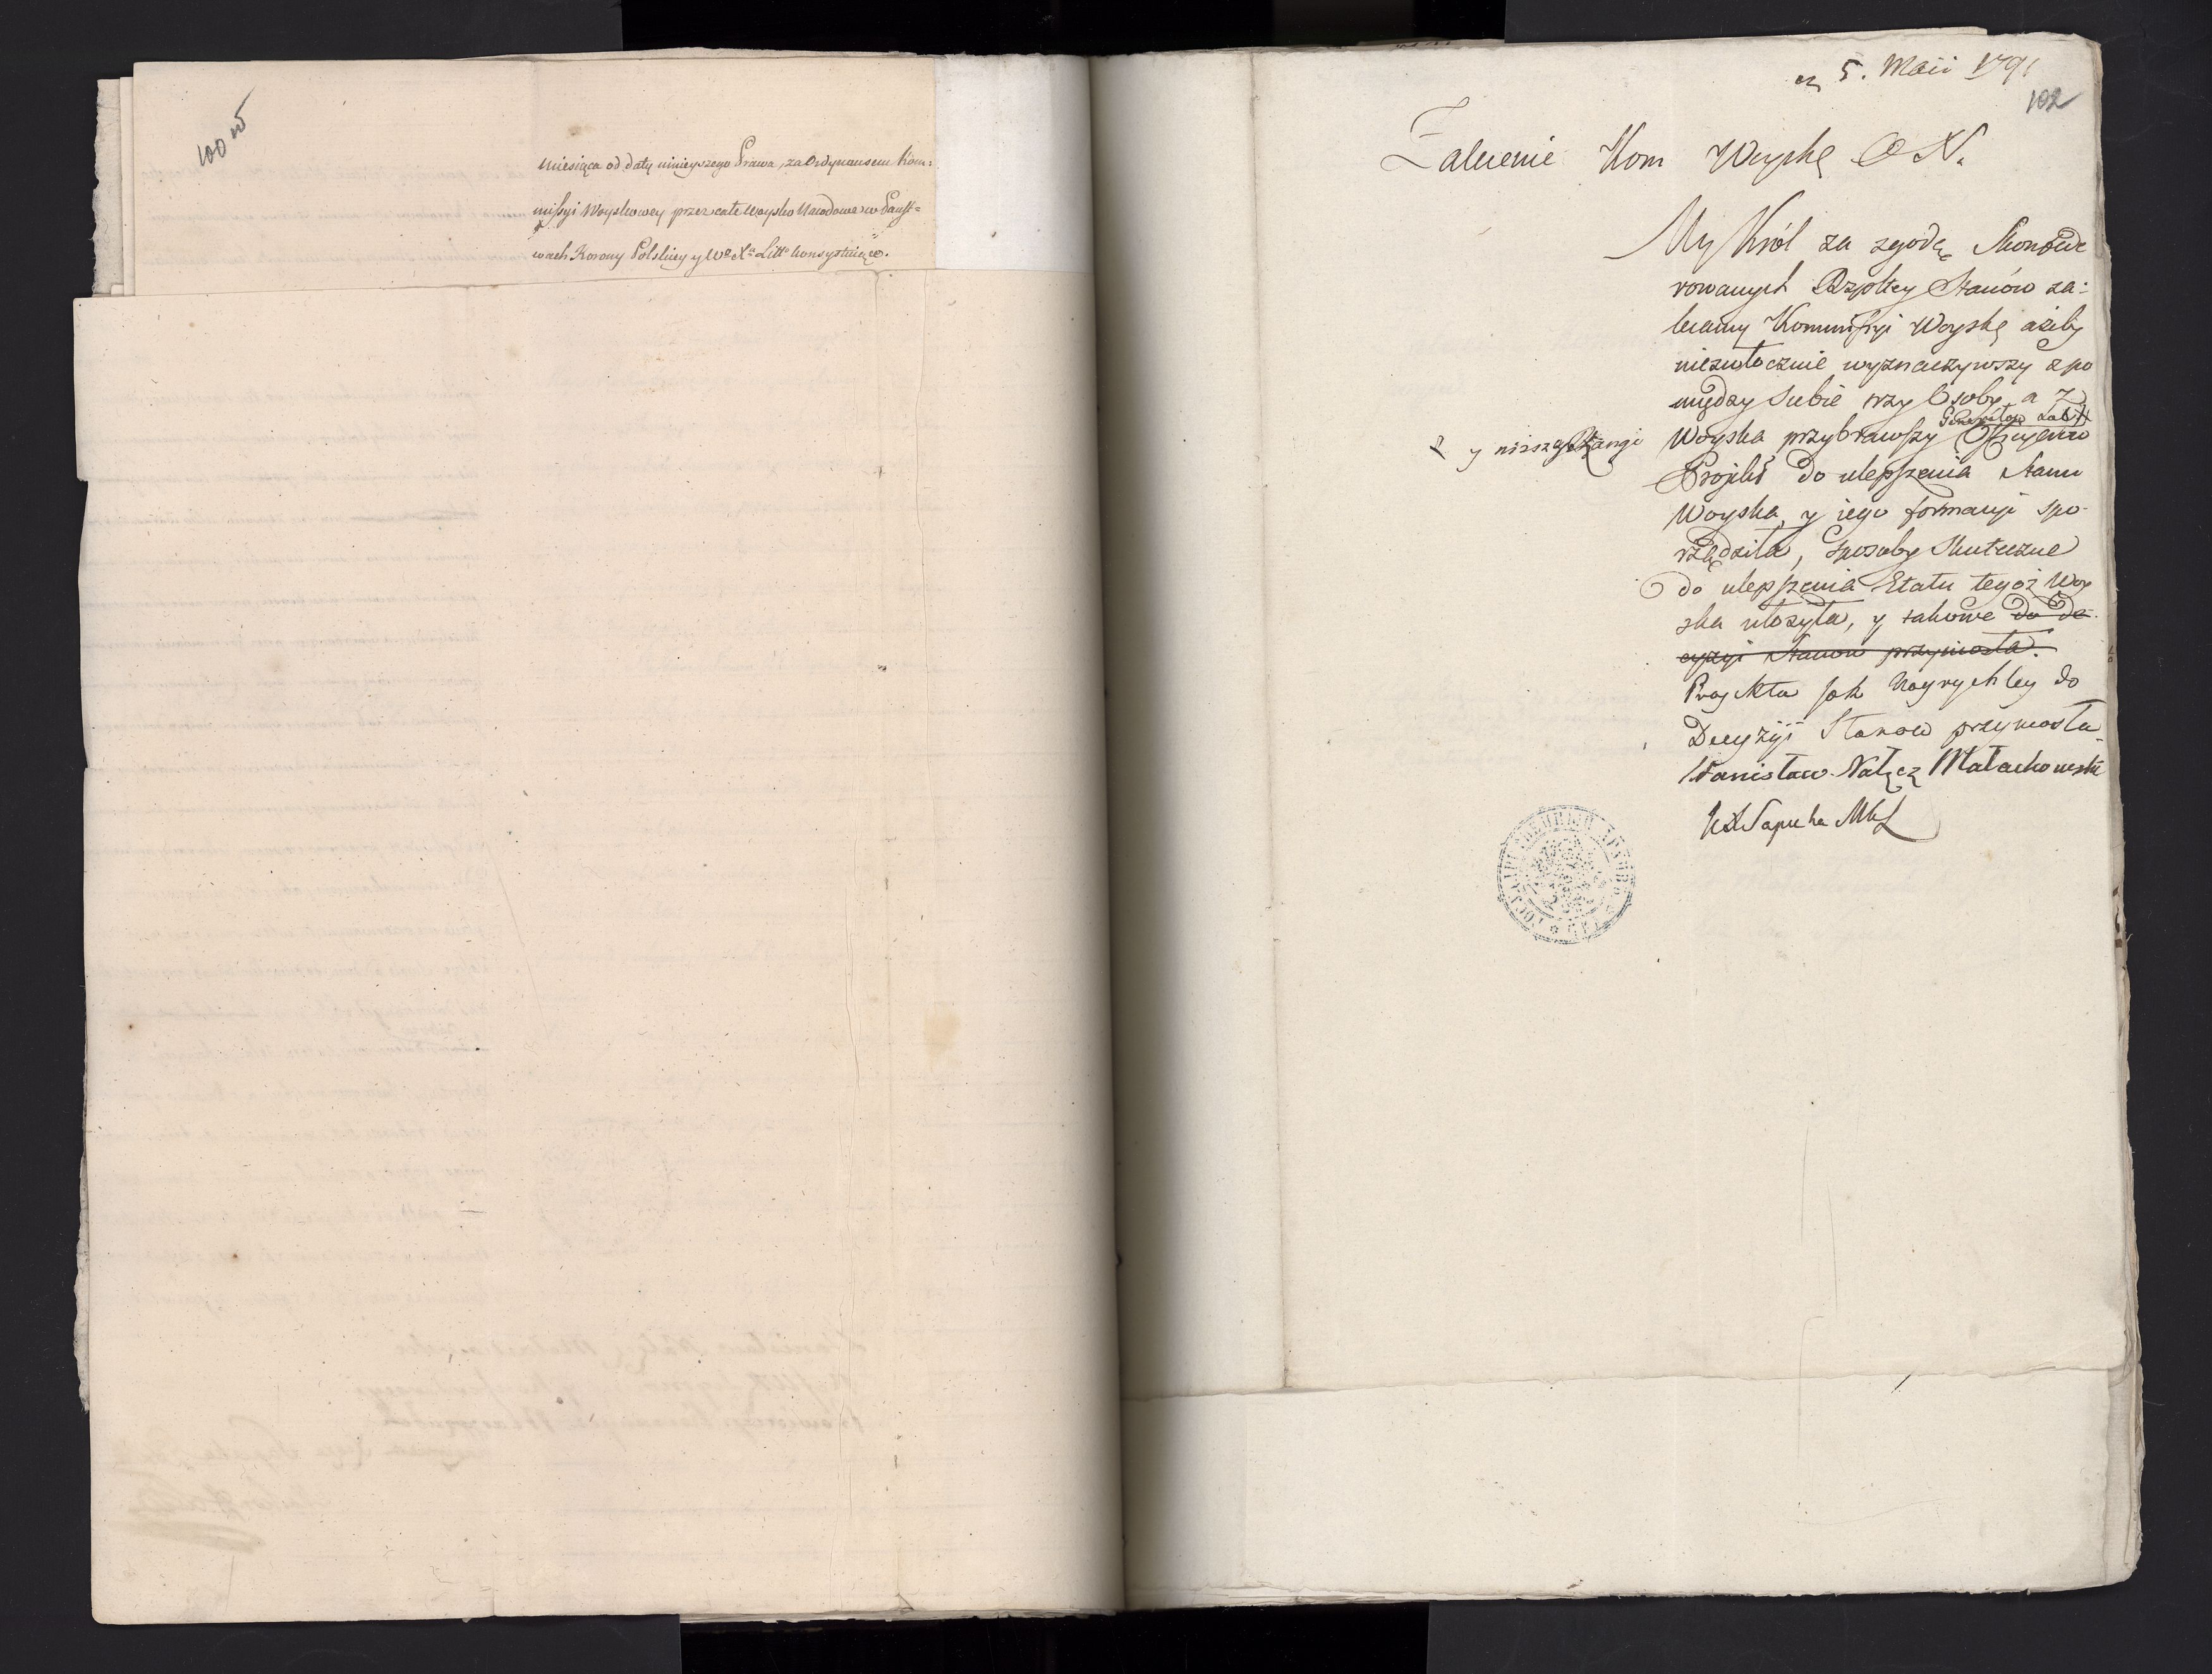 100 w
miesiąca od daty ninieyszego Prawa, za Ordynansem Kom=
missyi Woyskowey przez całe woysko Narodowe w Państ=
wach Korony Polskiey y Wo Xa Litto konsystuiące.
5. Maii 1791
102
Zalecenie Kom Woyskę O N.
My Król za zgodą Skonfede
rowanych Rzpltey Stanów za:
lecamy Kommissyi Woyskę ażeby
niezwłocznie wyznaczywszy z po
między siebie trzy Osoby, a z
Generałow
Woyska przybrawszy Officyerów
y niższey Rangi
Projekt do ulepszenia stanu
Woyska, y iego formacyi spo-
rządziła, sposoby skuteczne
do ulepszenia Etatu tegoż Woy
ska ułożyła, y takowe do de-
cyzyi Stanow przyniosła.
Projekta jak Nayrychley do
Decyzyi Stanow przyniosła
Stanisław Nałęcz Małachowski
K Sapieha MkL